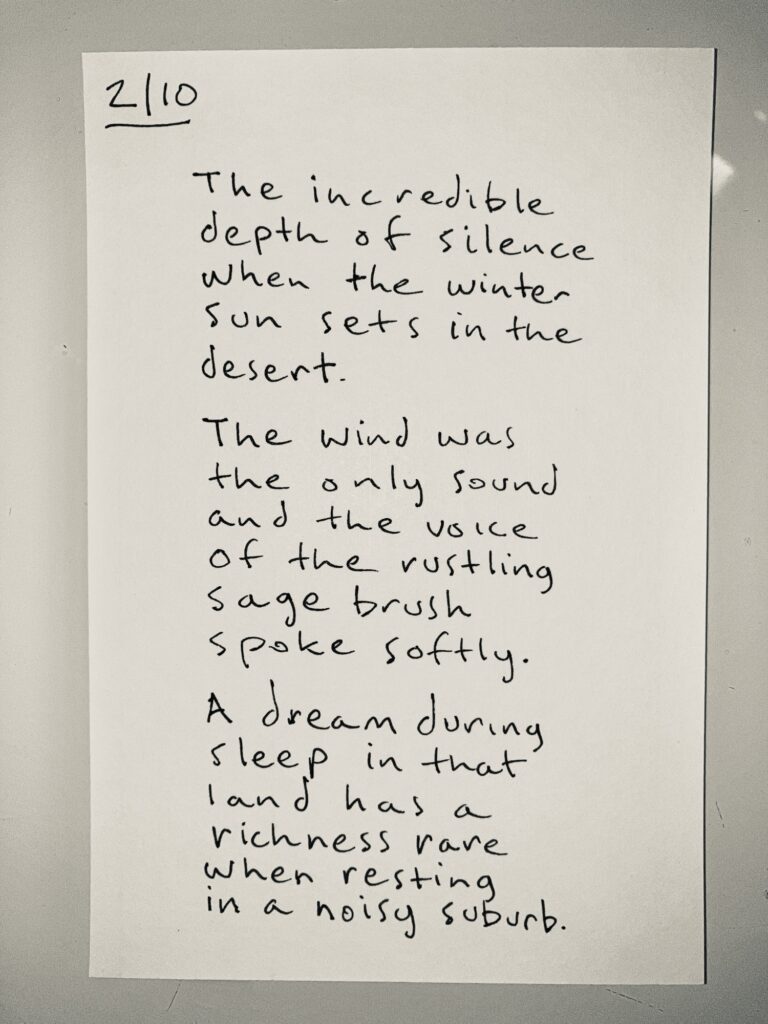 2/10
The incredible
depth of silence
when the winter
sun sets in the
desert.
The wind was
the only sound
and the voice
of the rustling
sage brush
spoke softly.
A dream during
sleep in that
land has a
richness rare
when resting
in a noisy suburb.